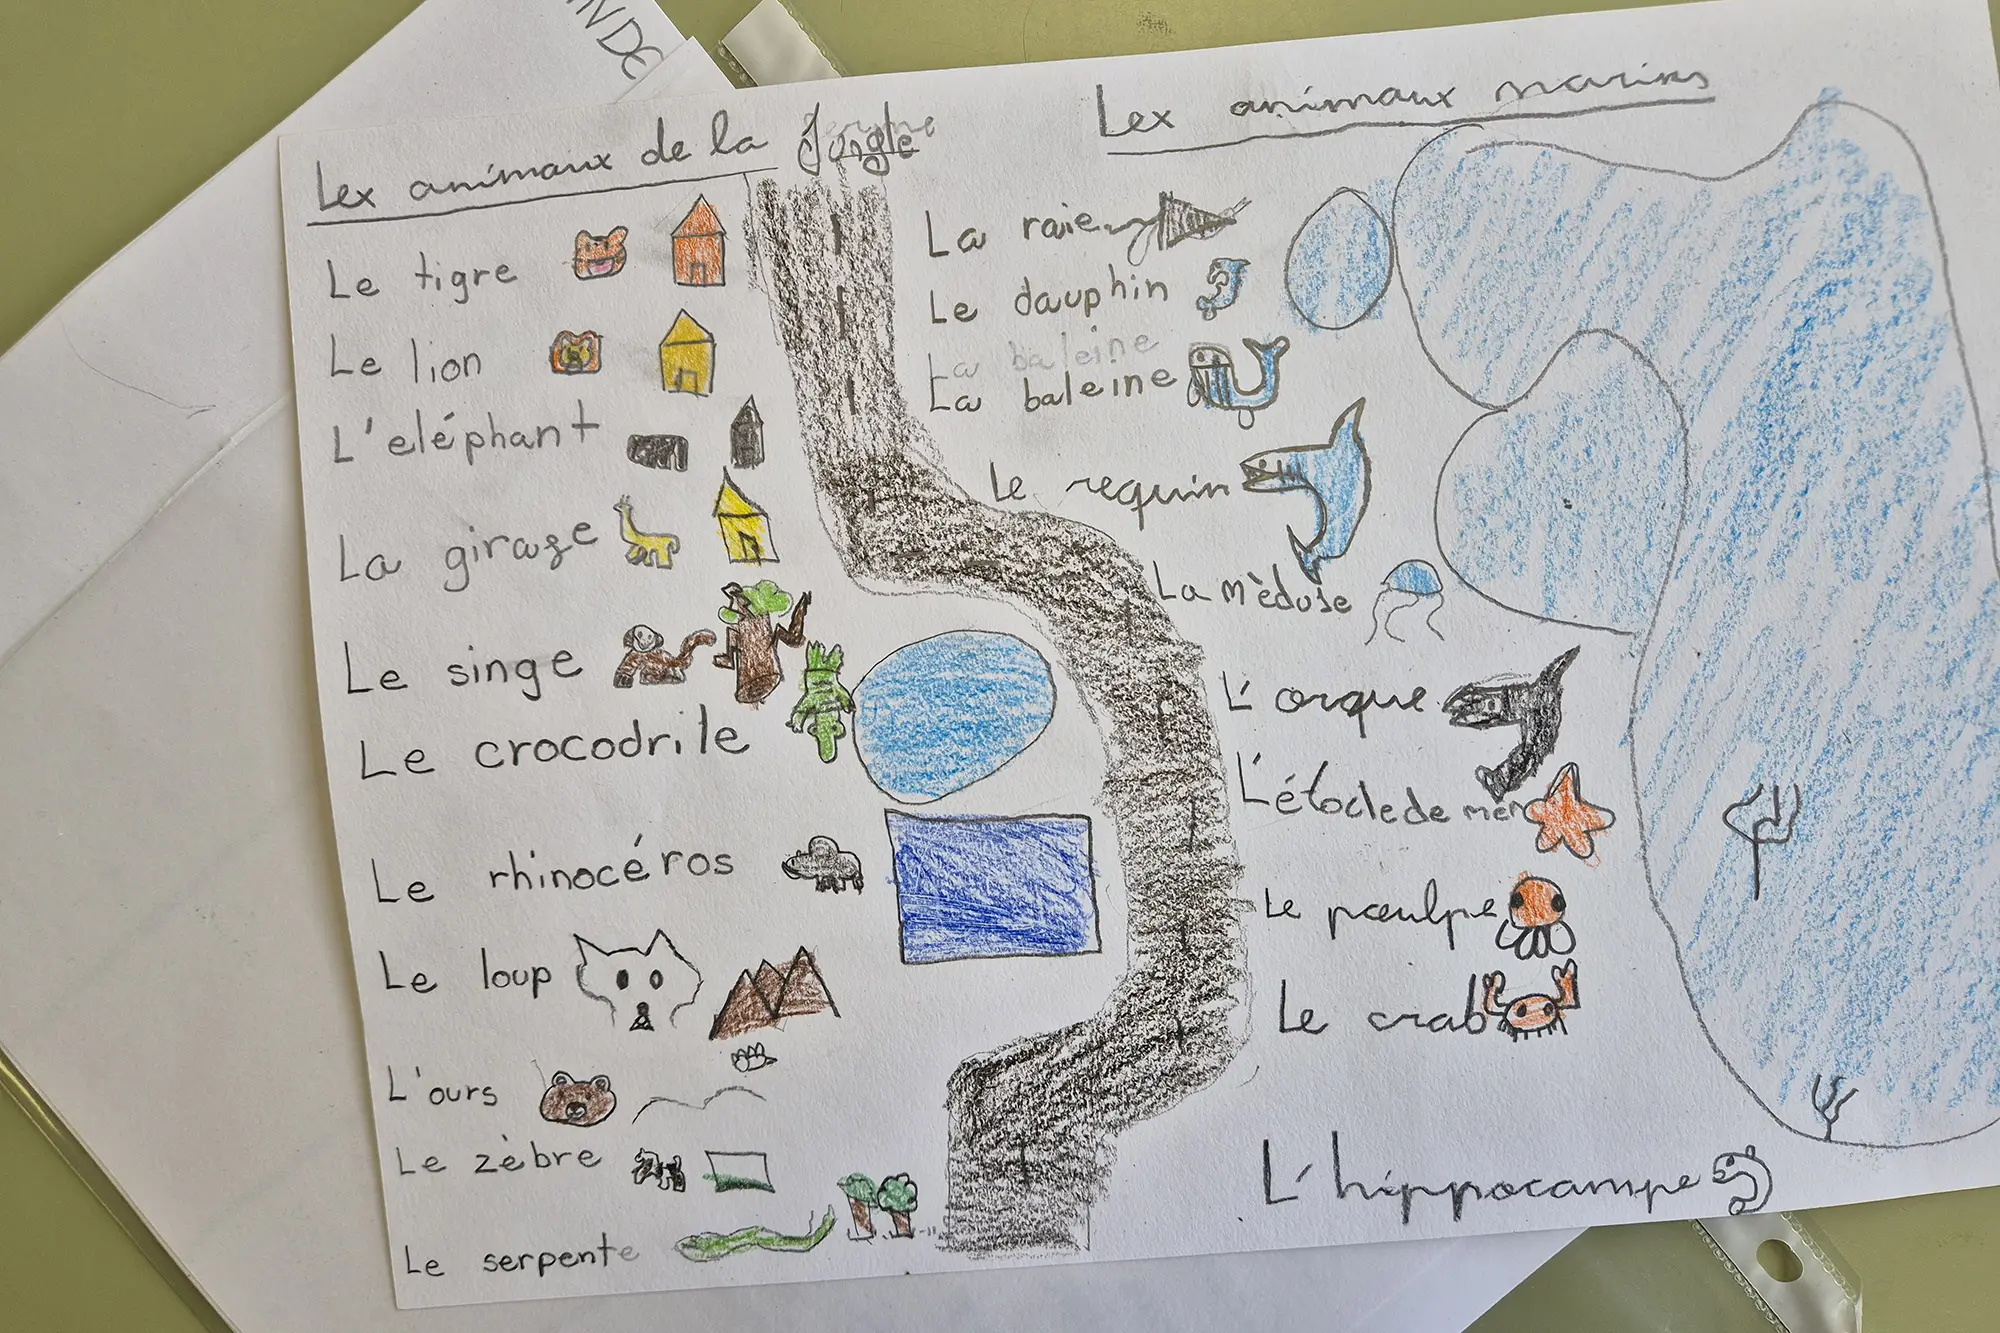 Lex animaux de la Jungle
Le tigre
Le lion
L'eléphant
La girafe
Le singe
Le crocodrile
Le rhinocéros
Le loup
L'ours
Le zèbre
Le serpente
Lex animaux marins
La raie
Le dauphin
La baleine
La baleine
Le requin
La mèduse
L'orque
L'étoclede mer
Le pœulpe
Le crab
L'hippocampe